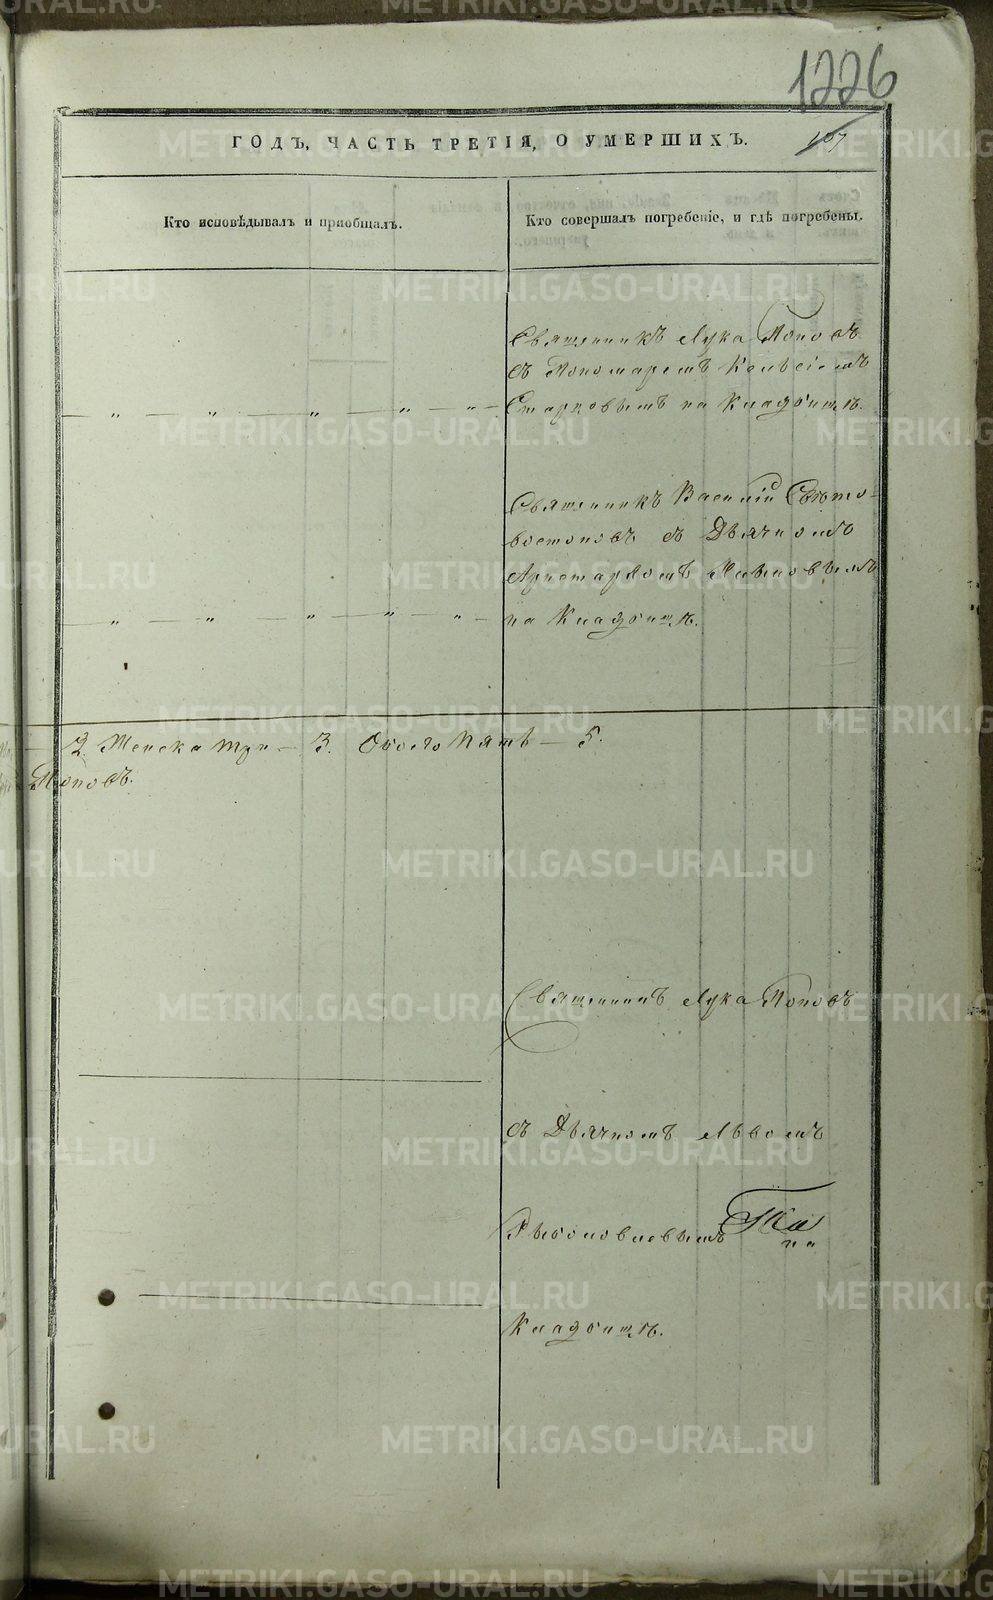 1226
107
ГОДЪ, ЧАСТЬ ТРЕТІЯ, О УМЕРШИХЪ.
Кто исповѣдывалъ и приобщалъ.
Кто совершалъ погребеніе, и гдѣ погребены.
Священникъ Лука Поповъ
съ Пономаремъ
— „ — „ — „ — „ — „ — Старковымъ на Кладбищѣ.
Священникъ Василій Свѣто-
востоковъ съ Дьячкомъ
Аристархомъ
— „ — „ — „ — „ — „ — на Кладбищѣ.
— 2. Женска три — 3. Обоего Пять — 5.
Поповъ.
Священникъ Лука Поповъ
съ Дьячкомъ Львомъ
Рыболовлевымъ
на
Кладбищѣ.
METRIKI.GASO-URAL.RU